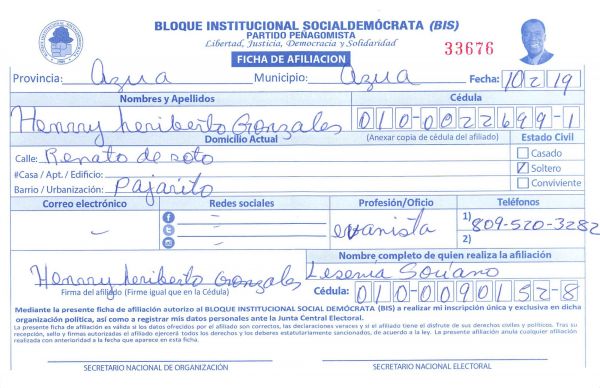 BLOQUE INSTITUCIONAL SOCIALDEMÓCRATA (BIS)
PARTIDO PEÑAGOMISTA
Libertad, Justicia, Democracia y Solidaridad
33676
FICHA DE AFILIACION
Provincia: Azua Municipio: Azua Fecha: 10/2/19
Nombres y Apellidos Cédula
Henrry heriberto Gonzales 010-0022699-1
Domicilio Actual (Anexar copia de cédula del afiliado) Estado Civil
Calle: Renato de soto Casado
#Casa / Apt. / Edificio: Soltero
Barrio / Urbanización: Pajarito Conviviente
Correo electrónico Redes sociales Profesión/Oficio Teléfonos
- - evanista 1) 809-520-3282
- 2)
-
Nombre completo de quien realiza la afiliación
Henrry heriberto Gonzales Lesenia Soriano
Firma del afiliado (Firme igual que en la Cédula) Cédula: 010-0090152-8
Mediante la presente ficha de afiliación autorizo al BLOQUE INSTITUCIONAL SOCIAL DEMÓCRATA (BIS) a realizar mi inscripción única y exclusiva en dicha
organización política, así como a registrar mis datos personales ante la Junta Central Electoral.
La presente ficha de afiliación es válida si los datos ofrecidos por el afiliado son correctos, las declaraciones veraces y si el afiliado tiene el disfrute de sus derechos civiles y políticos. Tras su
recepción, sello y firmas autorizadas el afiliado ejercerá todos los derechos y los deberes estatutariamente sancionados, de acuerdo a la ley. La presente afiliación anula cualquier afiliación
realizada con anterioridad a la fecha que aparece en esta ficha.
SECRETARIO NACIONAL DE ORGANIZACIÓN SECRETARIO NACIONAL ELECTORAL